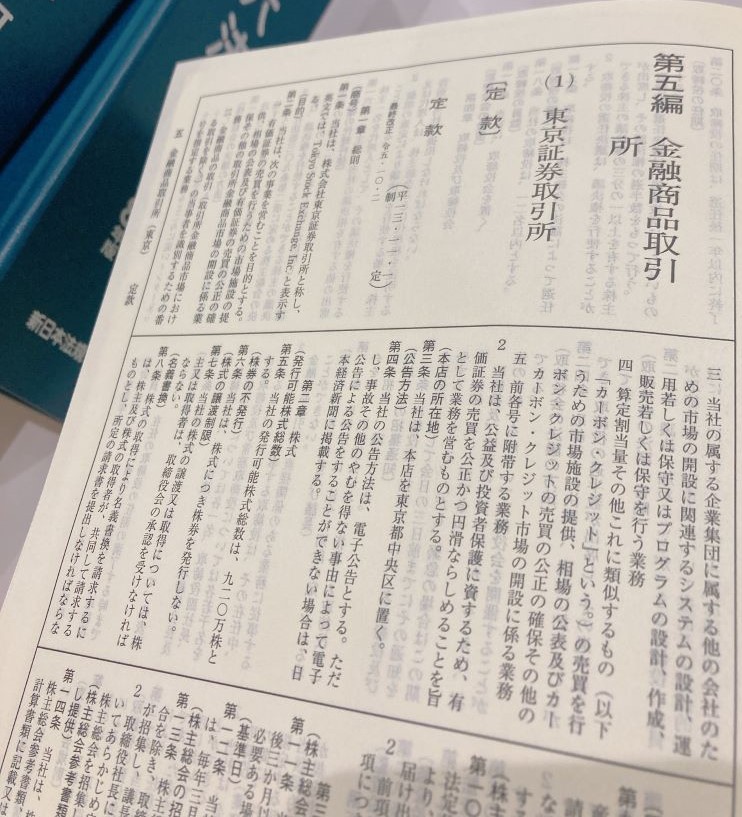 第五編 金融商品取引
所
(1) 東京証券取引所
〔定款〕
定款
(平一三・一一・一)
制定
最終改正 令五・一〇・二
第一章 総則
(商号)
第一条 当社は、株式会社東京証券取引所と称し、
英文では、Tokyo Stock Exchange, Inc. と表示す
る。
(目的)
第二条 当社は、次の事業を営むことを目的とする。
一 有価証券の売買を行うための市場施設の提
供、相場の公表及び有価証券の売買の公正の確
保その他の取引所金融商品市場の開設に係る業
二 金融商品の取引(取引所金融商品市場におけ
る取引を除く。)の当事者を識別するための番
号を指定する業務
三 当社の属する企業集団に属する他の会社のた
めの市場の開設に関連するシステムの設計、運
用若しくは保守又はプログラムの設計、作成、
販売若しくは保守を行う業務
四 算定割当量その他これに類似するもの(以下
「カーボン・クレジット」という。)の売買を行
うための市場施設の提供、相場の公表及びカー
ボン・クレジットの売買の公正の確保その他の
カーボン・クレジット市場の開設に係る業務
五 前各号に附帯する業務
2 当社は、公益及び投資者保護に資するため、有
価証券の売買を公正かつ円滑ならしめることを旨
として業務を営むものとする。
(本店の所在地)
第三条 当社は、本店を東京都中央区に置く。
(公告方法)
第四条 当社の公告方法は、電子公告とする。ただ
し、事故その他のやむを得ない事由によって電子
公告による公告をすることができない場合は、日
本経済新聞に掲載する。
第二章 株式
(発行可能株式総数)
第五条 当社の発行可能株式総数は、九二〇万株と
する。
(株券の不発行)
第六条 当社は、株式につき株券を発行しない。
(株式の譲渡制限)
第七条 当会社の株式の譲渡又は取得については、株
主又は取得者は、取締役会の承認を受けなければ
ならない。
(名義書換)
第八条 株式の取得により名義書換を請求するに
は、株主及び株式の取得者が、共同して請求する
ものとし、所定の請求書を提出しなければならな
第一〇
する
2 な
法定
より、
2 前項
届け出
項につ
第三
(株主総会
第一一条
後三か月以
必要ある場
(基準日)
第一二条 当
は、毎年三月
(株主総会の招
第一三条 株主
合を除き、取締
が招集し、議長
2 取締役社長に
いてあらかじめ定
株主総会を招集し
(株主総会参考書類
し提供)
第一四条 当社は、株
株主総会参考書類
計算書類に記載又は
五 金融商品取引所(東京) 定款
新日本法規